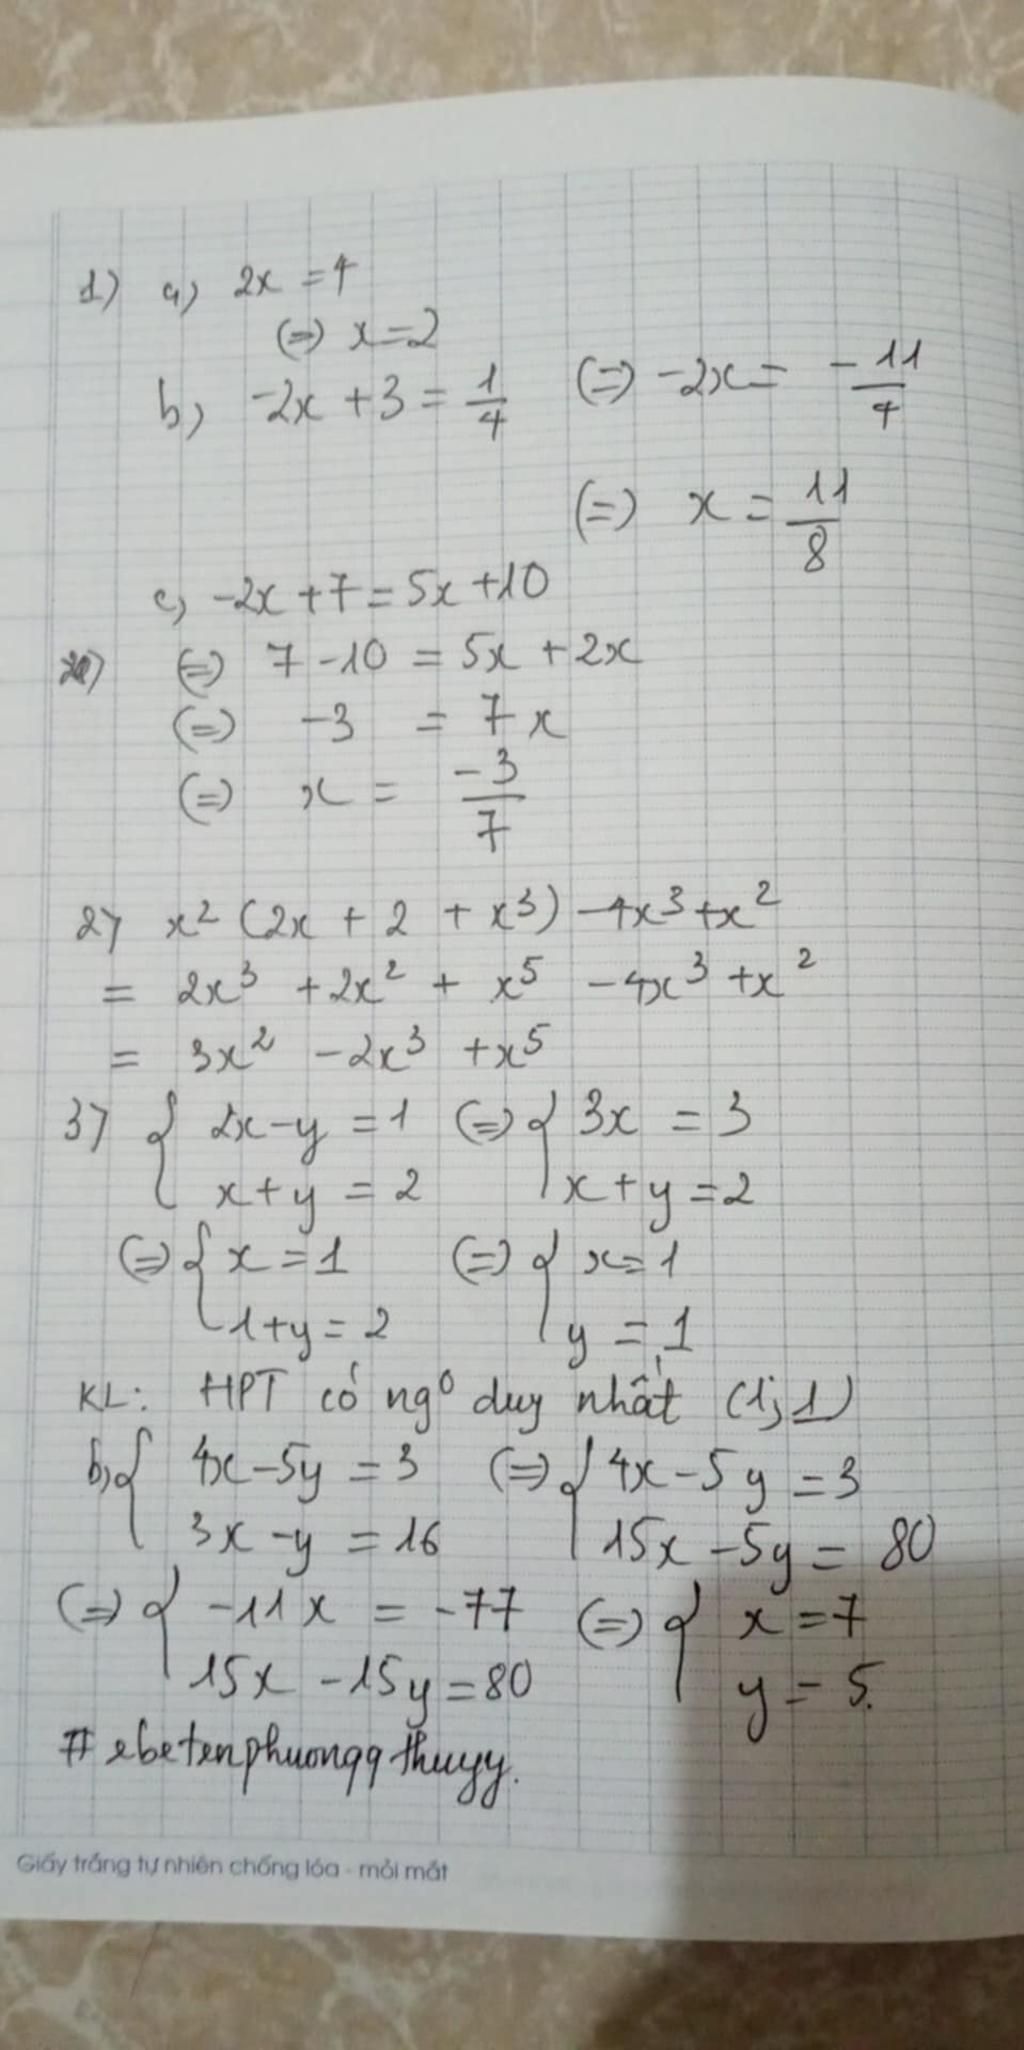 1) a) 2x = 4
(=) x = 2
b) -2x + 3 = 1/4 (=) -2x = -11/4
(=) x = 11/8
c) -2x + 7 = 5x + 10
(=) 7 - 10 = 5x + 2x
(=) -3 = 7x
(=) x = -3/7
2) x² (2x + 2 + x³) - 4x³ + x²
= 2x³ + 2x² + x⁵ - 4x³ + x²
= 3x² - 2x³ + x⁵
3) { 2x - y = 1 (=) { 3x = 3
x + y = 2 x + y = 2
(=) { x = 1 (=) { x = 1
1 + y = 2 y = 1
KL: HPT có ng⁰ duy nhất (1; 1)
b) { 4x - 5y = 3 (=) { 4x - 5y = 3
3x - y = 16 15x - 5y = 80
(=) { -11x = -77 (=) { x = 7
15x - 15y = 80 y = 5.
# ebetenphuongqthuyy.
Giấy trắng tự nhiên chống lóa - mỏi mắt